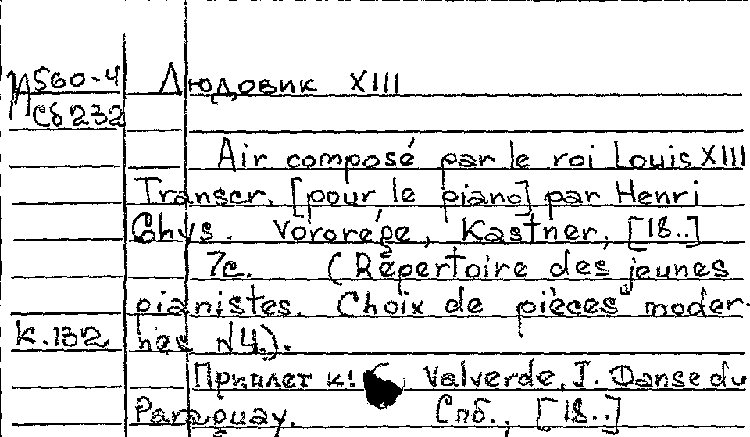 М560-4 Людовик XIII
Сб 232
Air composé par le roi Louis XIII
Transcr. [pour le piano] par Henri
Ghys. Varsovie, Kastner, [18..]
7с. (Répertoire des jeunes
pianistes. Choix de pièces moder-
К.132 nes №4.).
Приплет к: Valverde, J. Danse du
Paraguay. Спб., [18..]